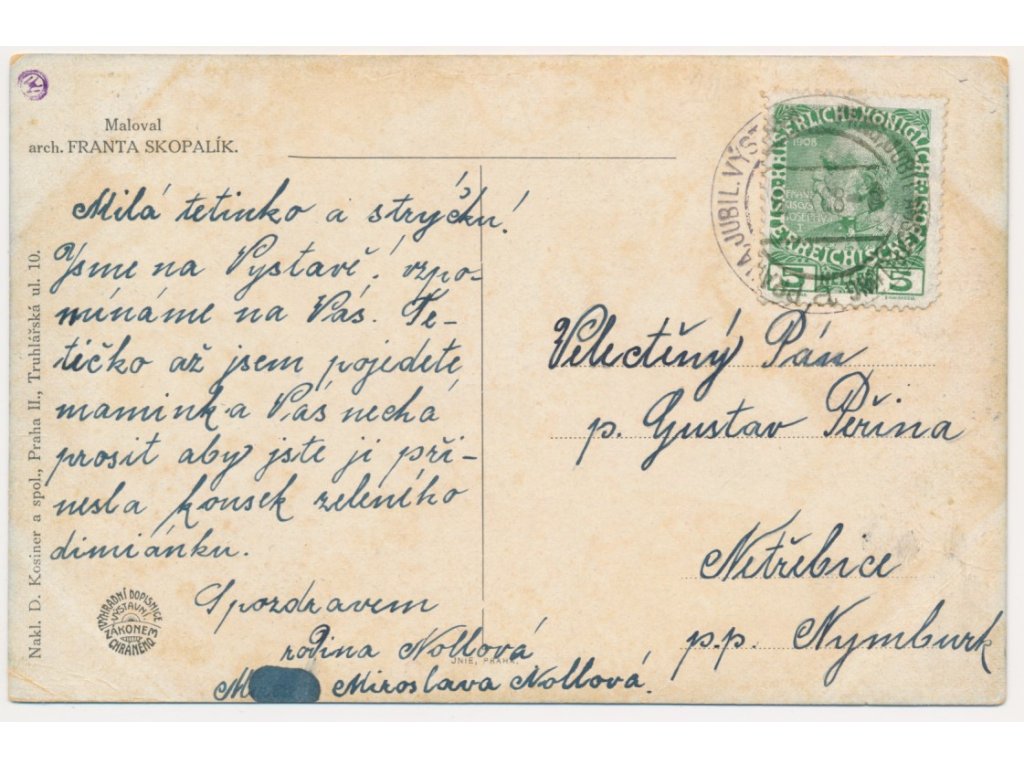 Maloval
arch. FRANTA SKOPALÍK.
Milá tetinko a strýčku!
Jsme na Výstavě, vzpo-
mínáme na Vás. Te-
tičko až jsem pojedete
maminka Vás nechá
prosit aby jste ji při-
nesla kousek zeleného
dimiánku.
S pozdravem
rodina Nollová
Miroslava Nollová.
Velectěný Pán
p. Gustav Peřina
Netřebice
p.p. Nymburk
Nakl. D. Kosiner a spol., Praha II., Truhlářská ul. 10.
VÝHRADNÍ DOPISNICE
VÝSTAVNÍ
ZÁKONEM
CHRÁNĚNO
UNIE, PRAHA.
JUBIL. VÝST
1908
5 5